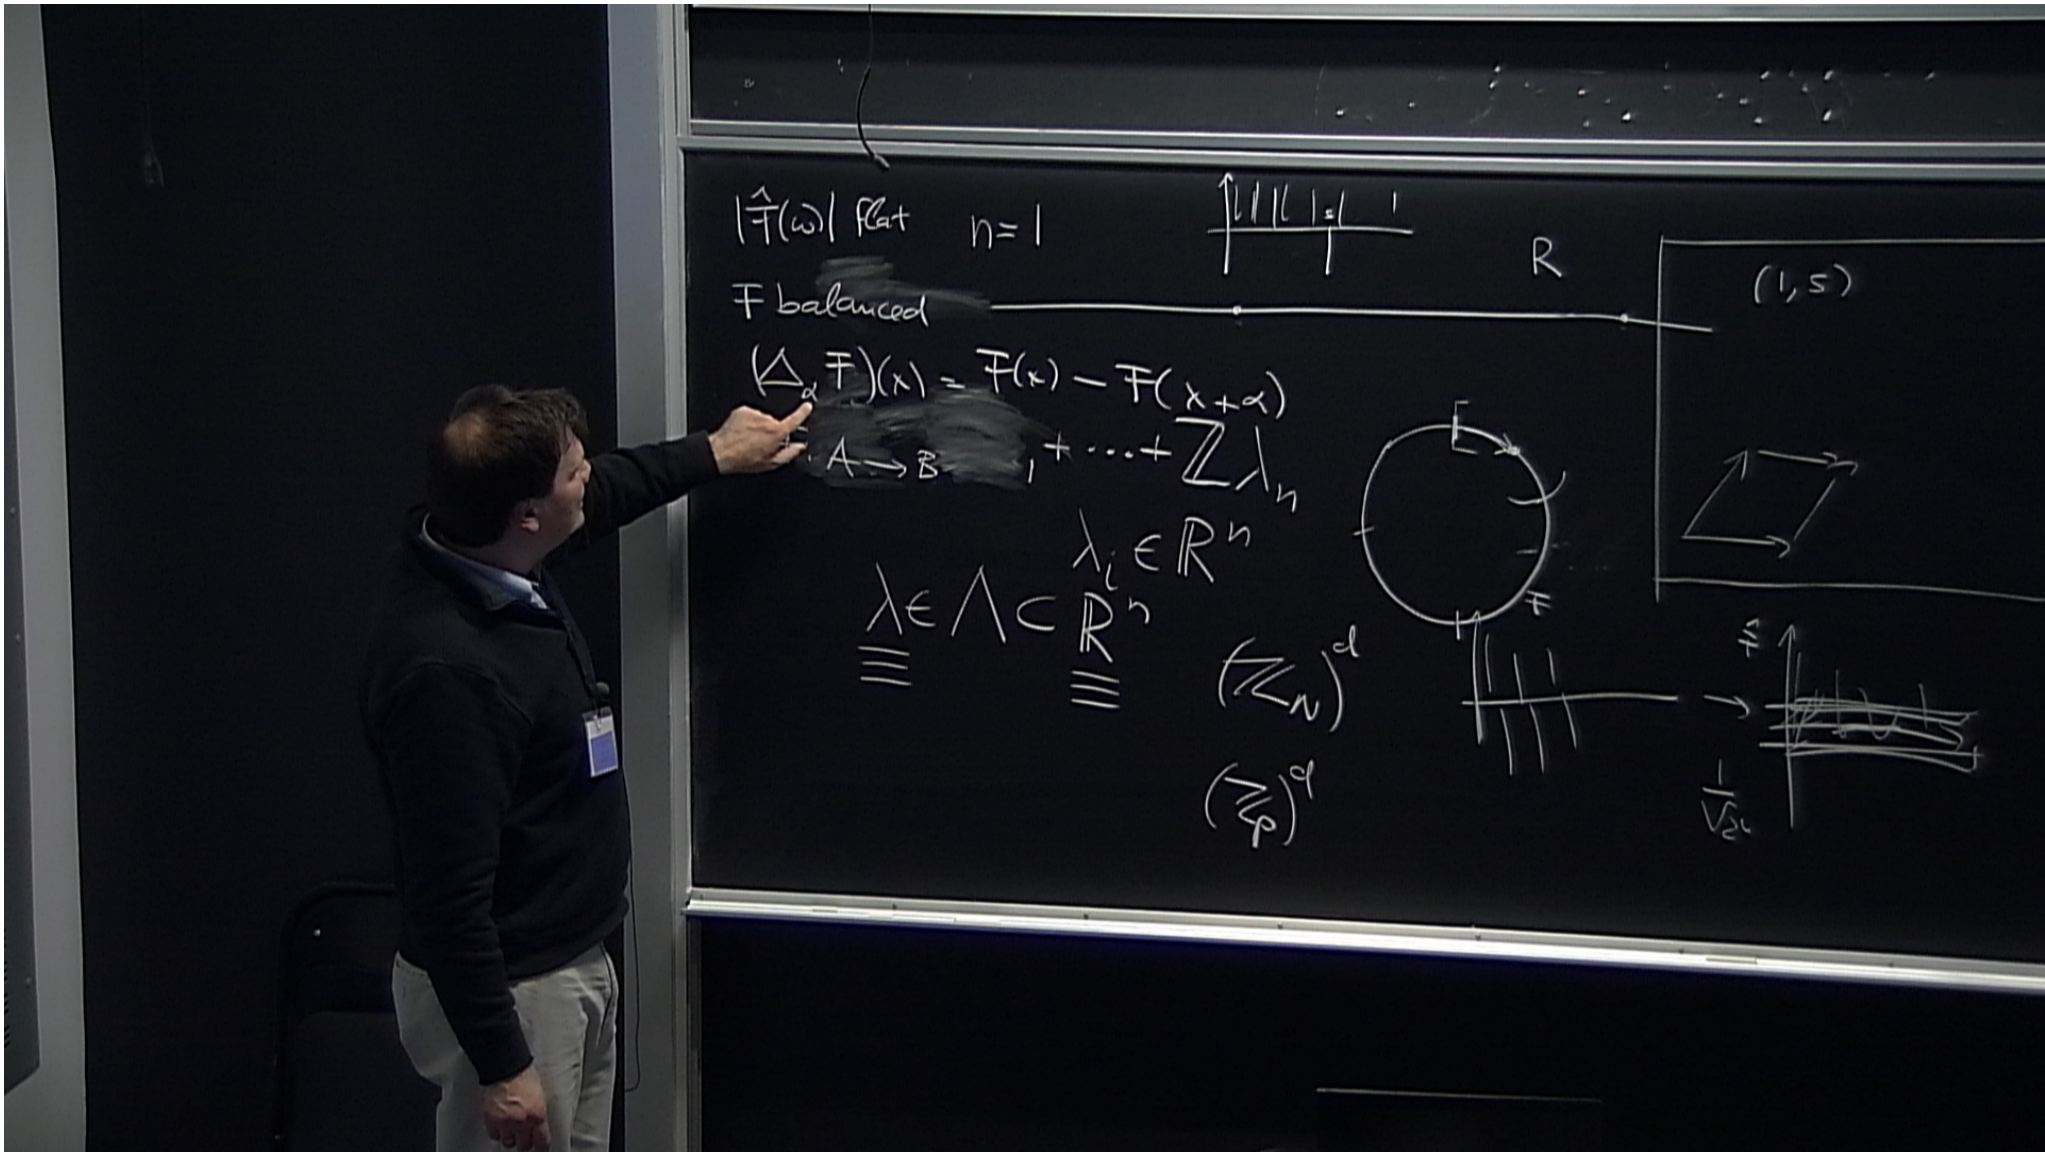 |F̂(ω)| flat n=1
R
(1,5)
F balanced
(Δ_α F)(x) = F(x) − F(x+α)
A → B
+ ... + ℤλ_n
λ_i ∈ ℝ^n
λ ∈ Λ ⊂ ℝ^n
(ℤ_N)^d
(ℤ_p)^d
F
F̂